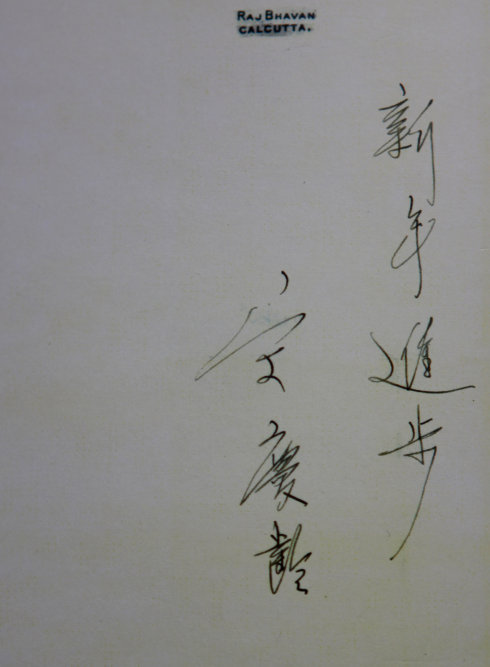 RAJ BHAVAN
CALCUTTA.
新年進步
宋慶齡